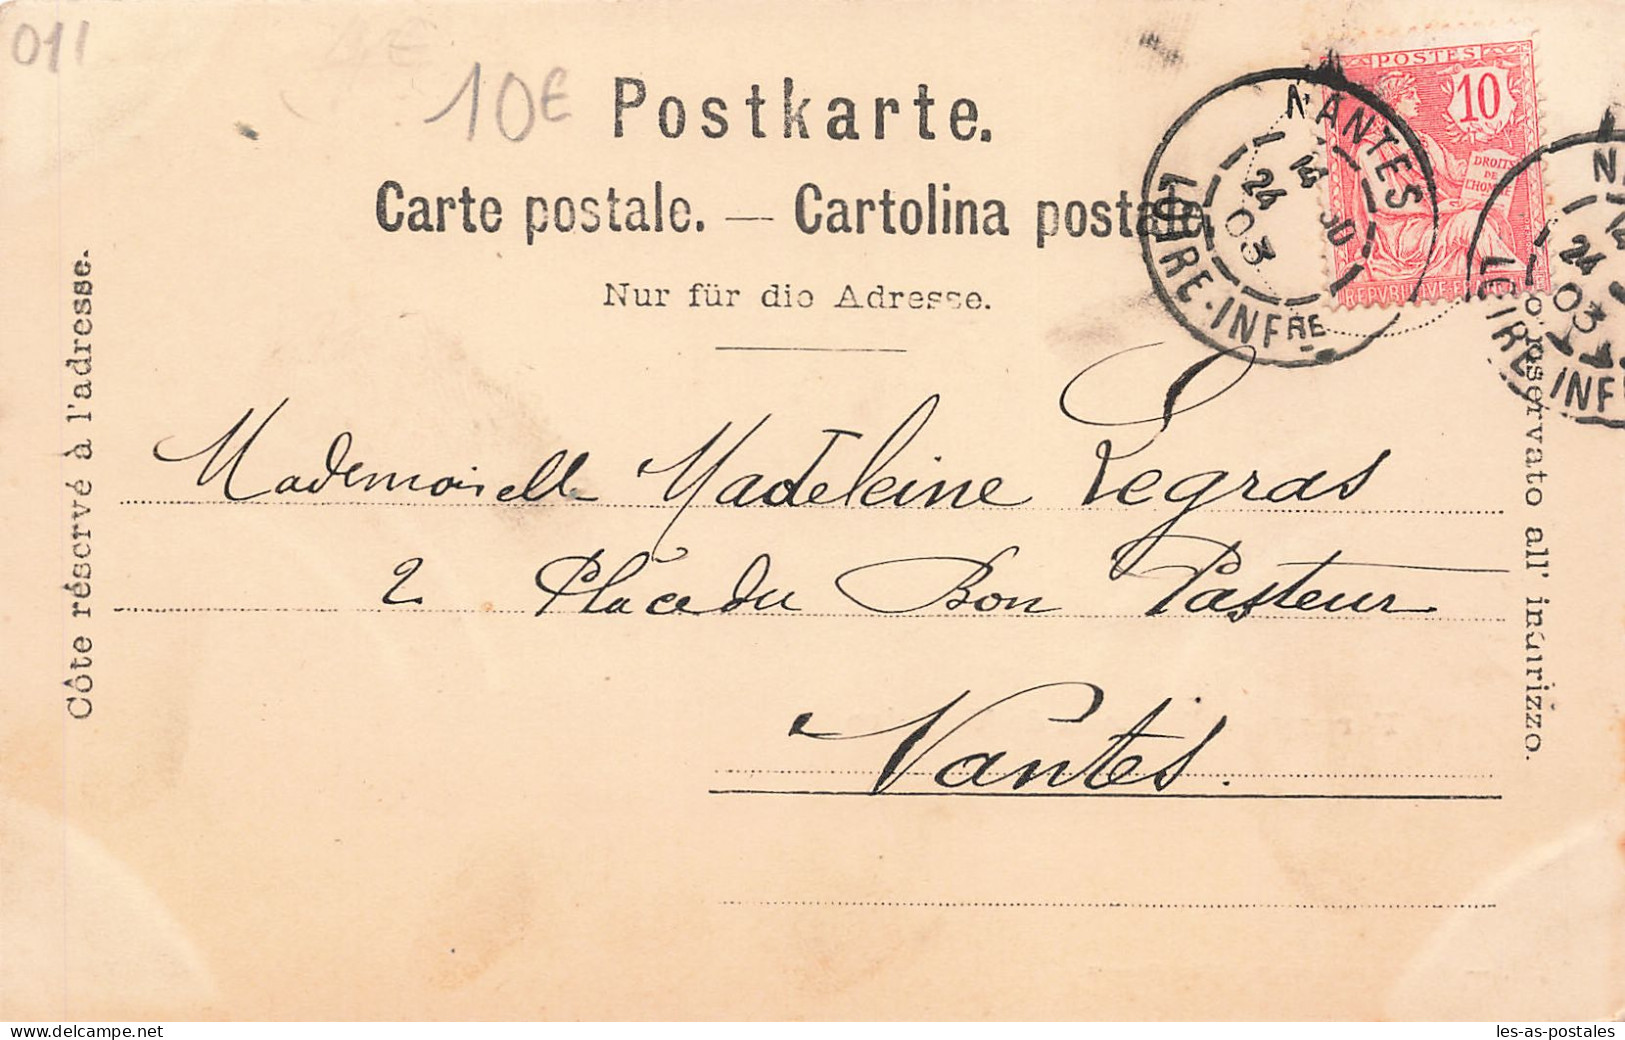 011
10€
Postkarte.
POSTES
10
DROITS
DE
L'HOMME
NANTES
24
03
LOIRE-INFRE
Carte postale. — Cartolina postale.
Nur für die Adresse.
Côte réservé à l'adresse.
Mademoiselle Madeleine Legras
2 Place du Bon Pasteur
Nantes.
riservato all' indirizzo.
24
03
LOIRE INF
delcampe.net
les-as-postales